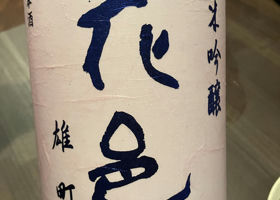 米吟醸
花邑
雄町
本酒